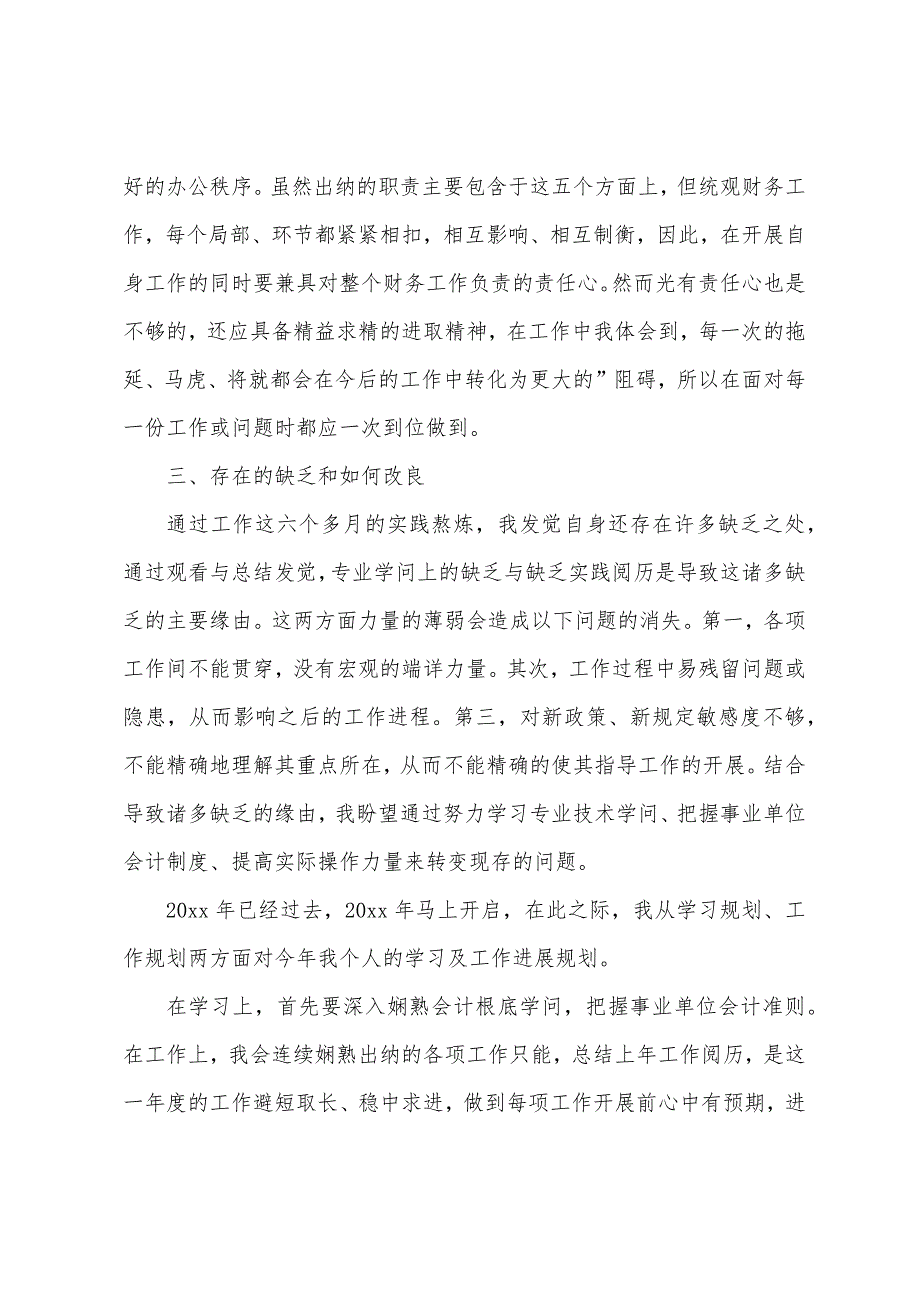 好的办公秩序。虽然出纳的职责主要包含于这五个方面上，但统观财务工
作，每个局部、环节都紧紧相扣，相互影响、相互制衡，因此，在开展自
身工作的同时要兼具对整个财务工作负责的责任心。然而光有责任心也是
不够的，还应具备精益求精的进取精神，在工作中我体会到，每一次的拖
延、马虎、将就都会在今后的工作中转化为更大的”阻碍，所以在面对每
一份工作或问题时都应一次到位做到。
三、存在的缺乏和如何改良
通过工作这六个多月的实践熬炼，我发觉自身还存在许多缺乏之处，
通过观看与总结发觉，专业学问上的缺乏与缺乏实践阅历是导致这诸多缺
乏的主要缘由。这两方面力量的薄弱会造成以下问题的消失。第一，各项
工作间不能贯穿，没有宏观的端详力量。其次，工作过程中易残留问题或
隐患，从而影响之后的工作进程。第三，对新政策、新规定敏感度不够，
不能精确地理解其重点所在，从而不能精确的使其指导工作的开展。结合
导致诸多缺乏的缘由，我盼望通过努力学习专业技术学问、把握事业单位
会计制度、提高实际操作力量来转变现存的问题。
20xx 年已经过去，20xx 年马上开启，在此之际，我从学习规划、工
作规划两方面对今年我个人的学习及工作进展规划。
在学习上，首先要深入娴熟会计根底学问，把握事业单位会计准则。
在工作上，我会连续娴熟出纳的各项工作只能，总结上年工作阅历，是这
一年度的工作避短取长、稳中求进，做到每项工作开展前心中有预期，进